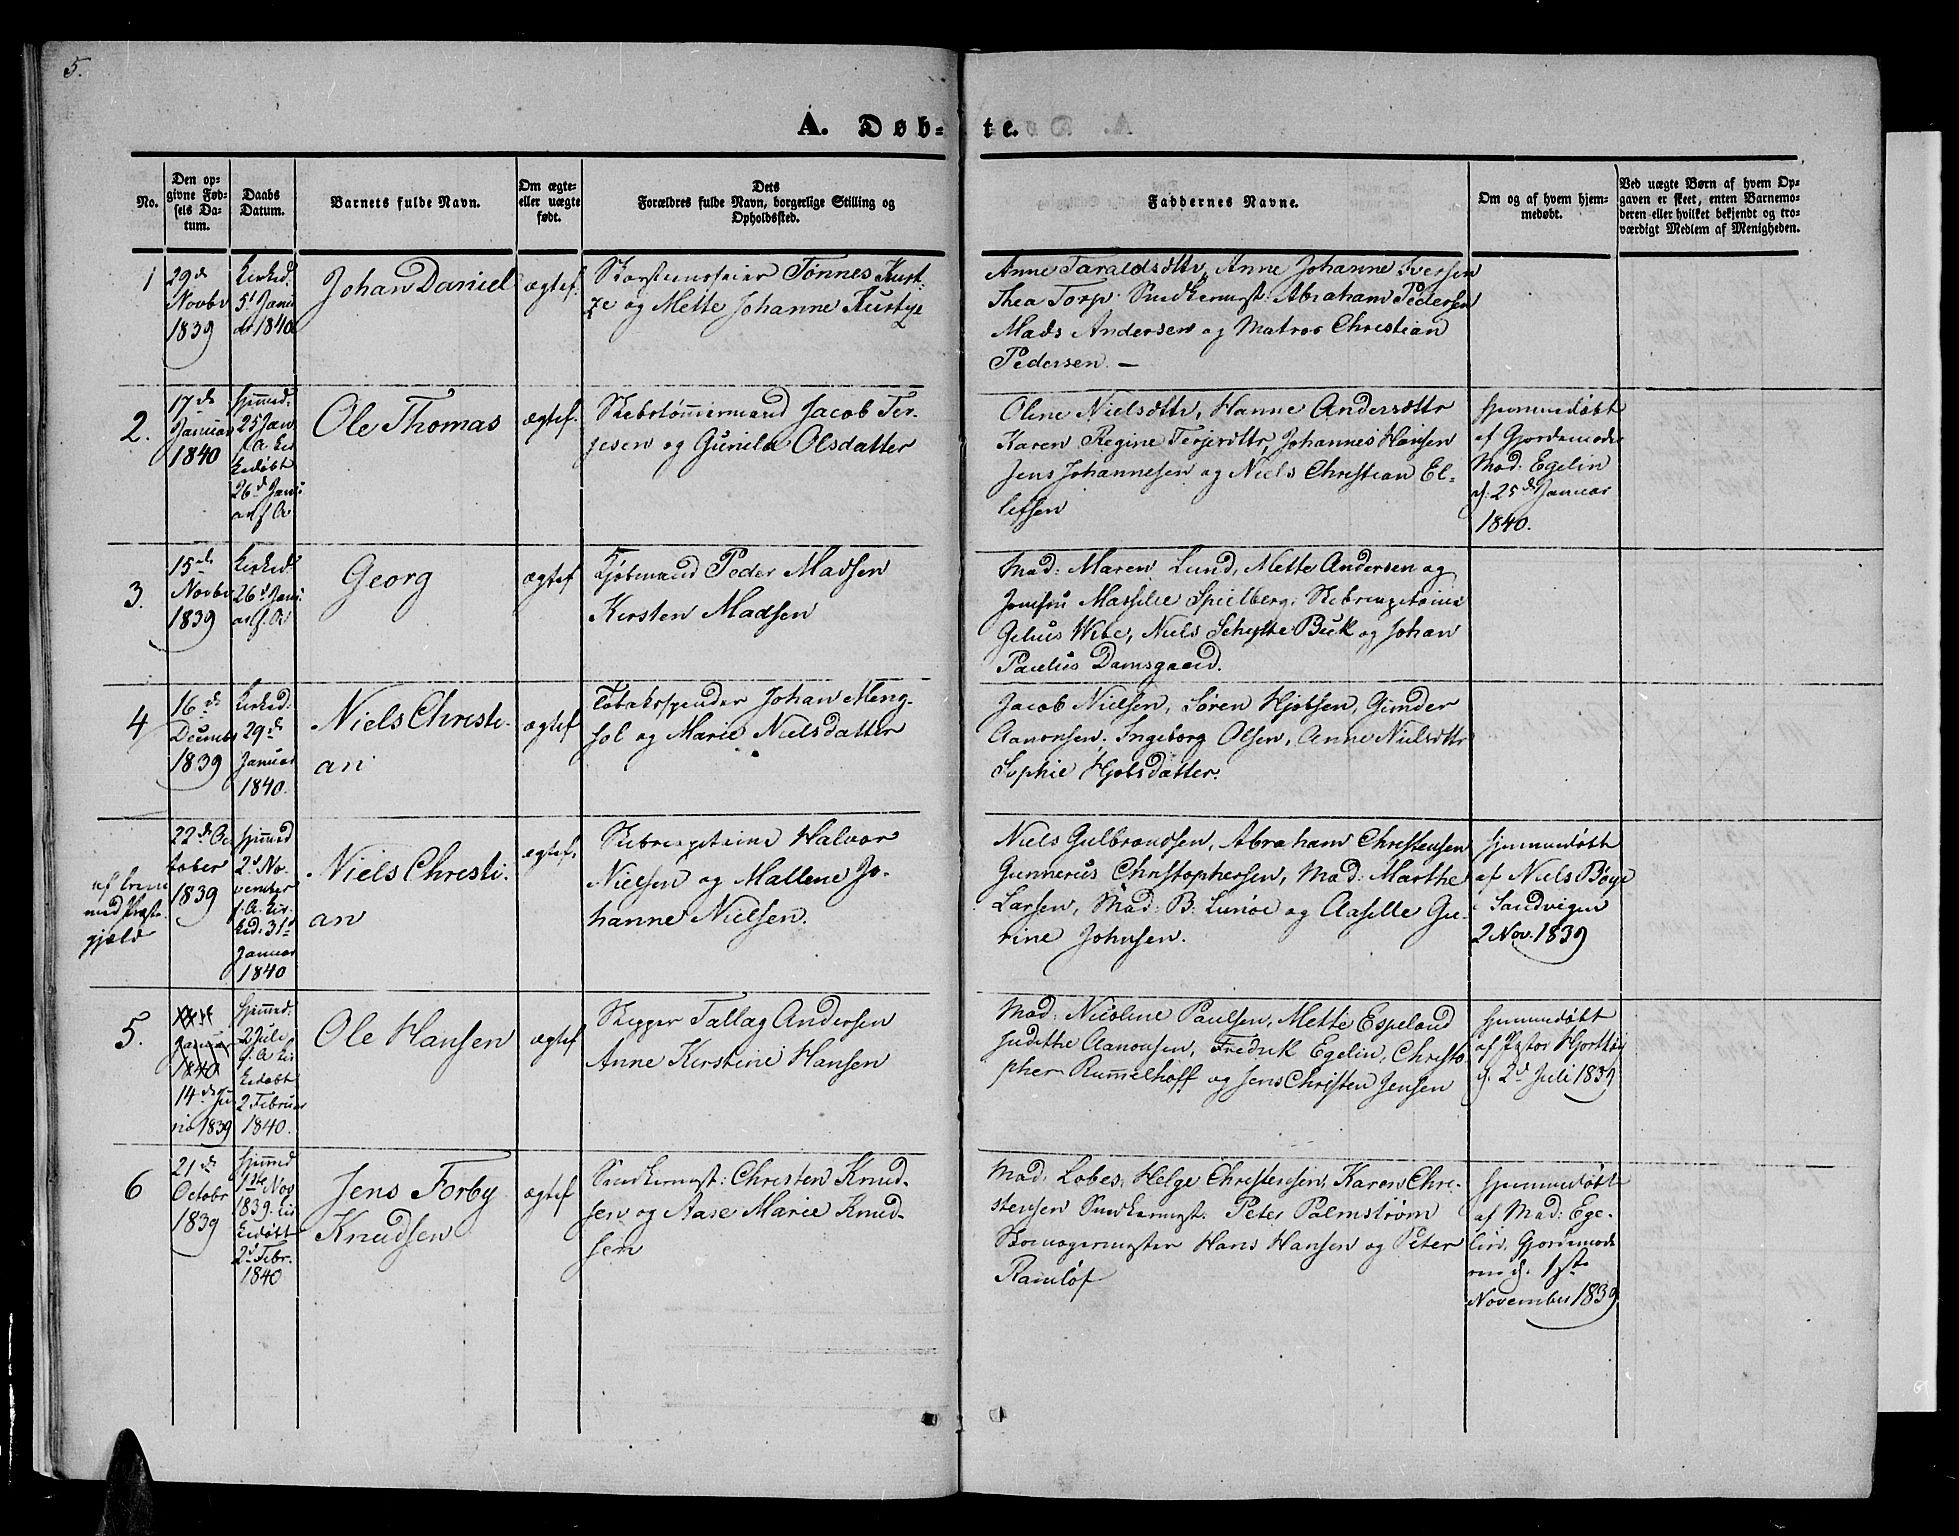 5.
A. Døb-
te.
No.
Den op-
givne Fød-
sels Da-
tum.
Daabs
Datum.
Barnets fulde Navn.
Om ægte-
eller uægte
født.
Dets
Forældres fulde Navn, borgerlige Stilling og
Opholdssted.
Faddernes Navne.
Om og af hvem hjem-
medøbt.
Ved uægte Børn af hvem Op-
gaven er skeet, enten Barnemo-
deren eller hvilket bekjendt og tro-
værdigt Medlem af Menigheden.
1
29de
Novbr
1839
Kirked.
5t Janu
ar 1840
Johan Daniel
ægtef.
Skorstensfeier Tønnes Kust-
ze og Mette Johanne Kustze
Anne Taraldsdttr, Anne Johanne Iversen
Thea Torp. Snedkermst: Abraham Pedersen
Mads Andersen og Matros Christian
Pedersen. —
2.
17de
Januar
1840
hjemmed.
25 Jan
f. A. kir
kedøbt
26de Janu
ar f. A
Ole Thomas
ægtef.
Skibstømmermand Jacob Ter-
jesen og Gunild Olsdatter
Oline Nielsdttr, Hanne Andersdttr
Karen Regine Terjesdttr, Johannes Hansen
Jens Johannesen og Niels Christian El-
lefsen
hjemmedøbt
af Gjordemoder
Mad: Egelin
d. 25de Januar
1840.
3.
15de
Novbr
1839
Kirked.
26d Janu
ar f. A
Georg
ægtef
Kjøbmand Peder Madsen
Kirsten Madsen
Mad: Maren Lund, Mette Andersen og
Jomfru Massilie Spielberg; Skibscapitaine
Gelius Wibe, Niels Schytte Buk og Johan
Paulus Damsgaard.
4
16de
Decembr
1839
Kirked.
29de
Januar
1840.
Niels Christi-
an
ægtef
Tobaksspinder Johan Meng-
sol og Marie Nielsdatter
Jacob Nielsen, Søren Hjobsen, Gunder
Aanonsen, Ingeborg Olsen, Anne Nielsdttr
Sophie Hjobsdatter.
af frem
med Præste-
gjeld
22de Oc
tober
1839
hjemmed
2d No-
vember
f. A. kir
ked. 31d
Januar
1840
Niels Christi-
an
ægtef.
Skibscapitaine Halvor
Nielsen og Mallene Jo-
hanne Nielsen.
Niels Gulbrandsen, Abraham Christensen
Gunnerus Christophersen, Mad: Marthe
Larsen, Mad: B. Lunøe og Aaselle Gu-
rine Johnsen.
hjemmedøbt
af Niels Böye
i Sandvigen
2 Nov. 1839
5.
Januar
1840
14de Ju
nio 1839
hjemmed.
2 Juli
f. A kir
kedøbt
2 Februar
1840.
Ole Hansen
ægtef
Skipper Tallag Andersen
Anne Kirstine Hansen
Mad: Nicoline Paulsen, Mette Espeland
Judithe Aanonsen, Fredrik Egelin, Christo-
pher Rummelhoff og Jens Christen Jensen
hjemmedøbt
af Pastor Hjorthøi
d. 2d Juli 1839
6
21de
Octobr
1839
hjemmed
1ste Nov
1839. kir
kedøbt
2d Febr.
1840
Jens Forby
Knudsen
ægtef
Snedkermst: Christen Knud-
sen og Aase Marie Knud-
sen
Mad: Lobes, Helge Christensen, Karen Chri-
stensen Snedkermst. Peter Palmstrøm
Skomagermester Hans Hansen og Peter
Ramløf
hjemmedøbt
af Mad: Ege-
lin, Gjordemode
ren d. 1ste
November 1839.